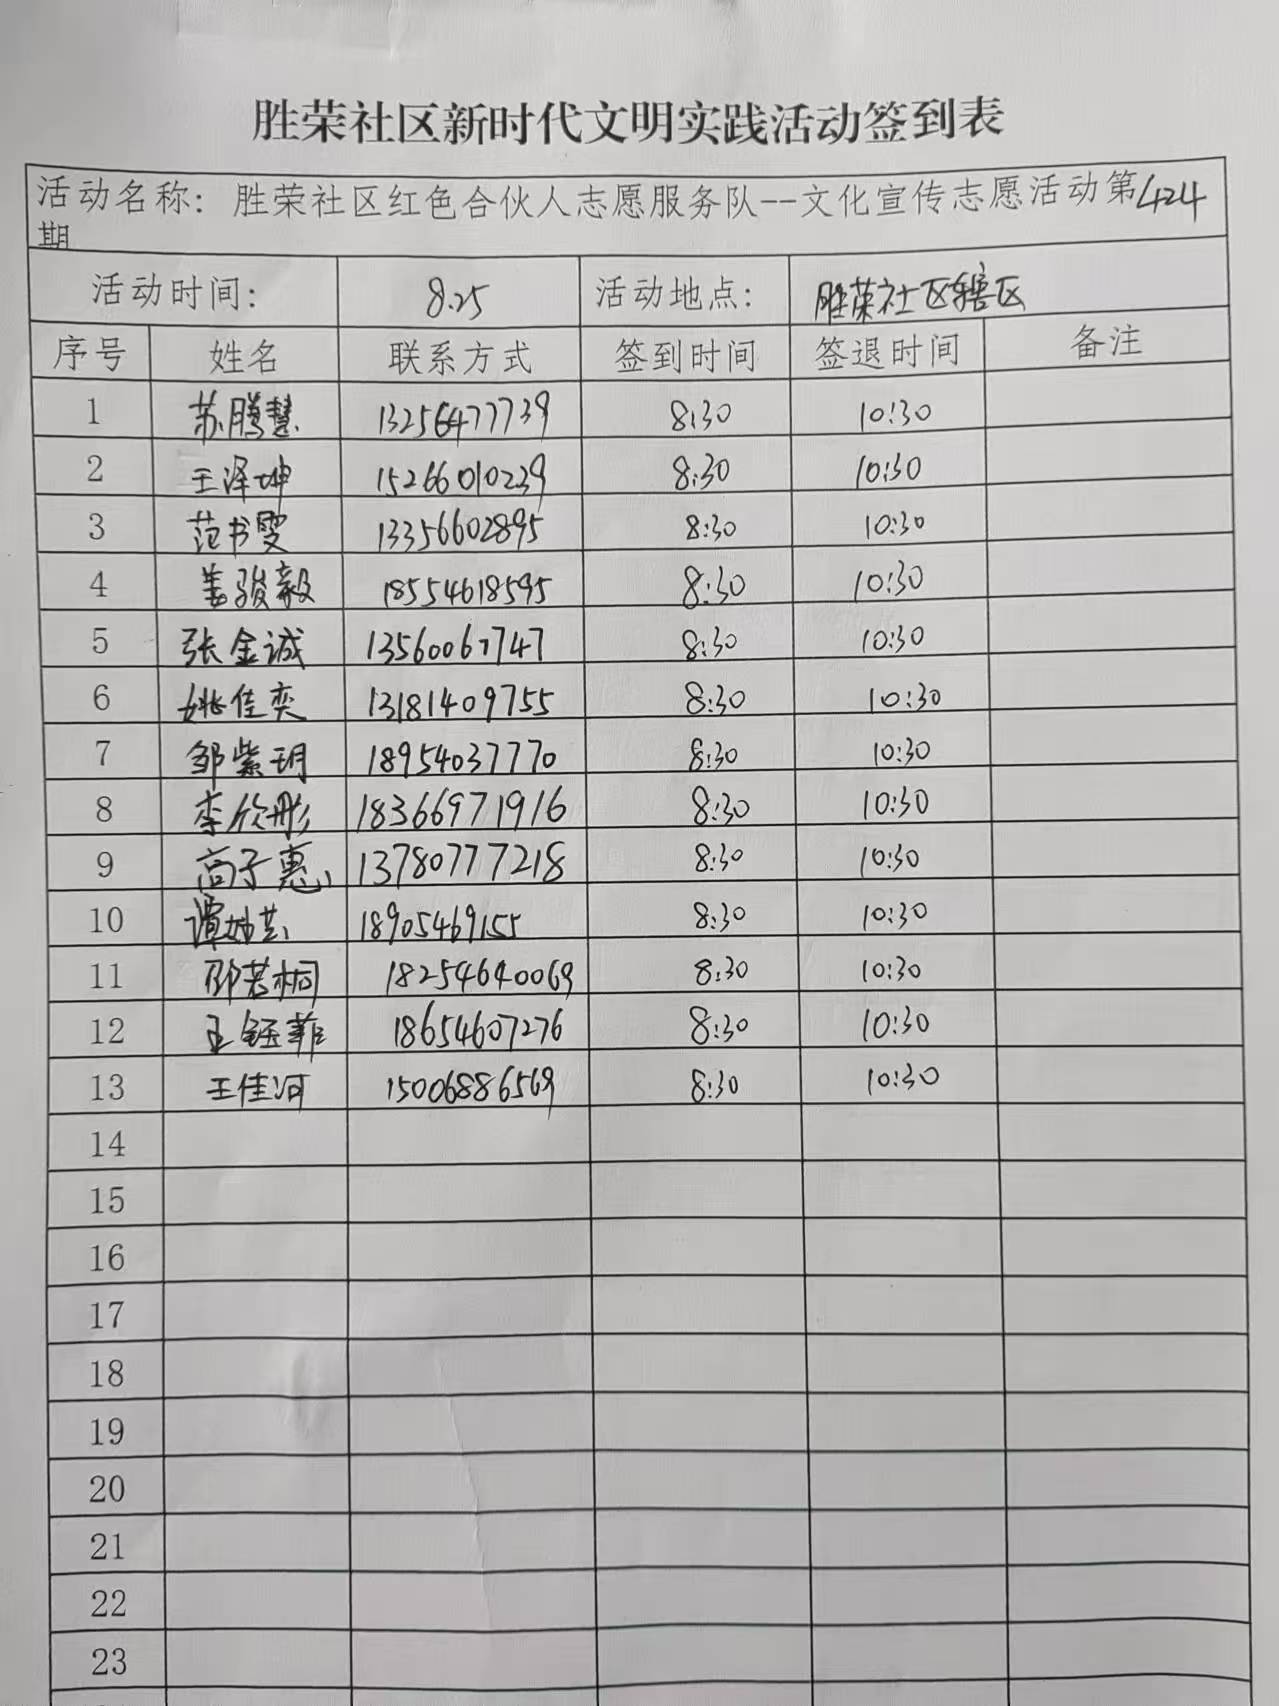 胜荣社区新时代文明实践活动签到表
活动名称：胜荣社区红色合伙人志愿服务队--文化宣传志愿活动第424
期
活动时间： 8.25 活动地点： 胜荣社区辖区
序号 姓名 联系方式 签到时间 签退时间 备注
1 苏腾慧 13256477739 8:30 10:30
2 王泽坤 15266010239 8:30 10:30
3 范书雯 13356602895 8:30 10:30
4 姜骏毅 18554618595 8:30 10:30
5 张金诚 13560067747 8:30 10:30
6 姚佳奕 13181409755 8:30 10:30
7 邹紫玥 18954037770 8:30 10:30
8 李欣彤 18366971916 8:30 10:30
9 高子惠 13780777218 8:30 10:30
10 谭 18905469155 8:30 10:30
11 邵若桐 18254640069 8:30 10:30
12 王钰菲 18654607276 8:30 10:30
13 王佳河 15006886569 8:30 10:30
14
15
16
17
18
19
20
21
22
23